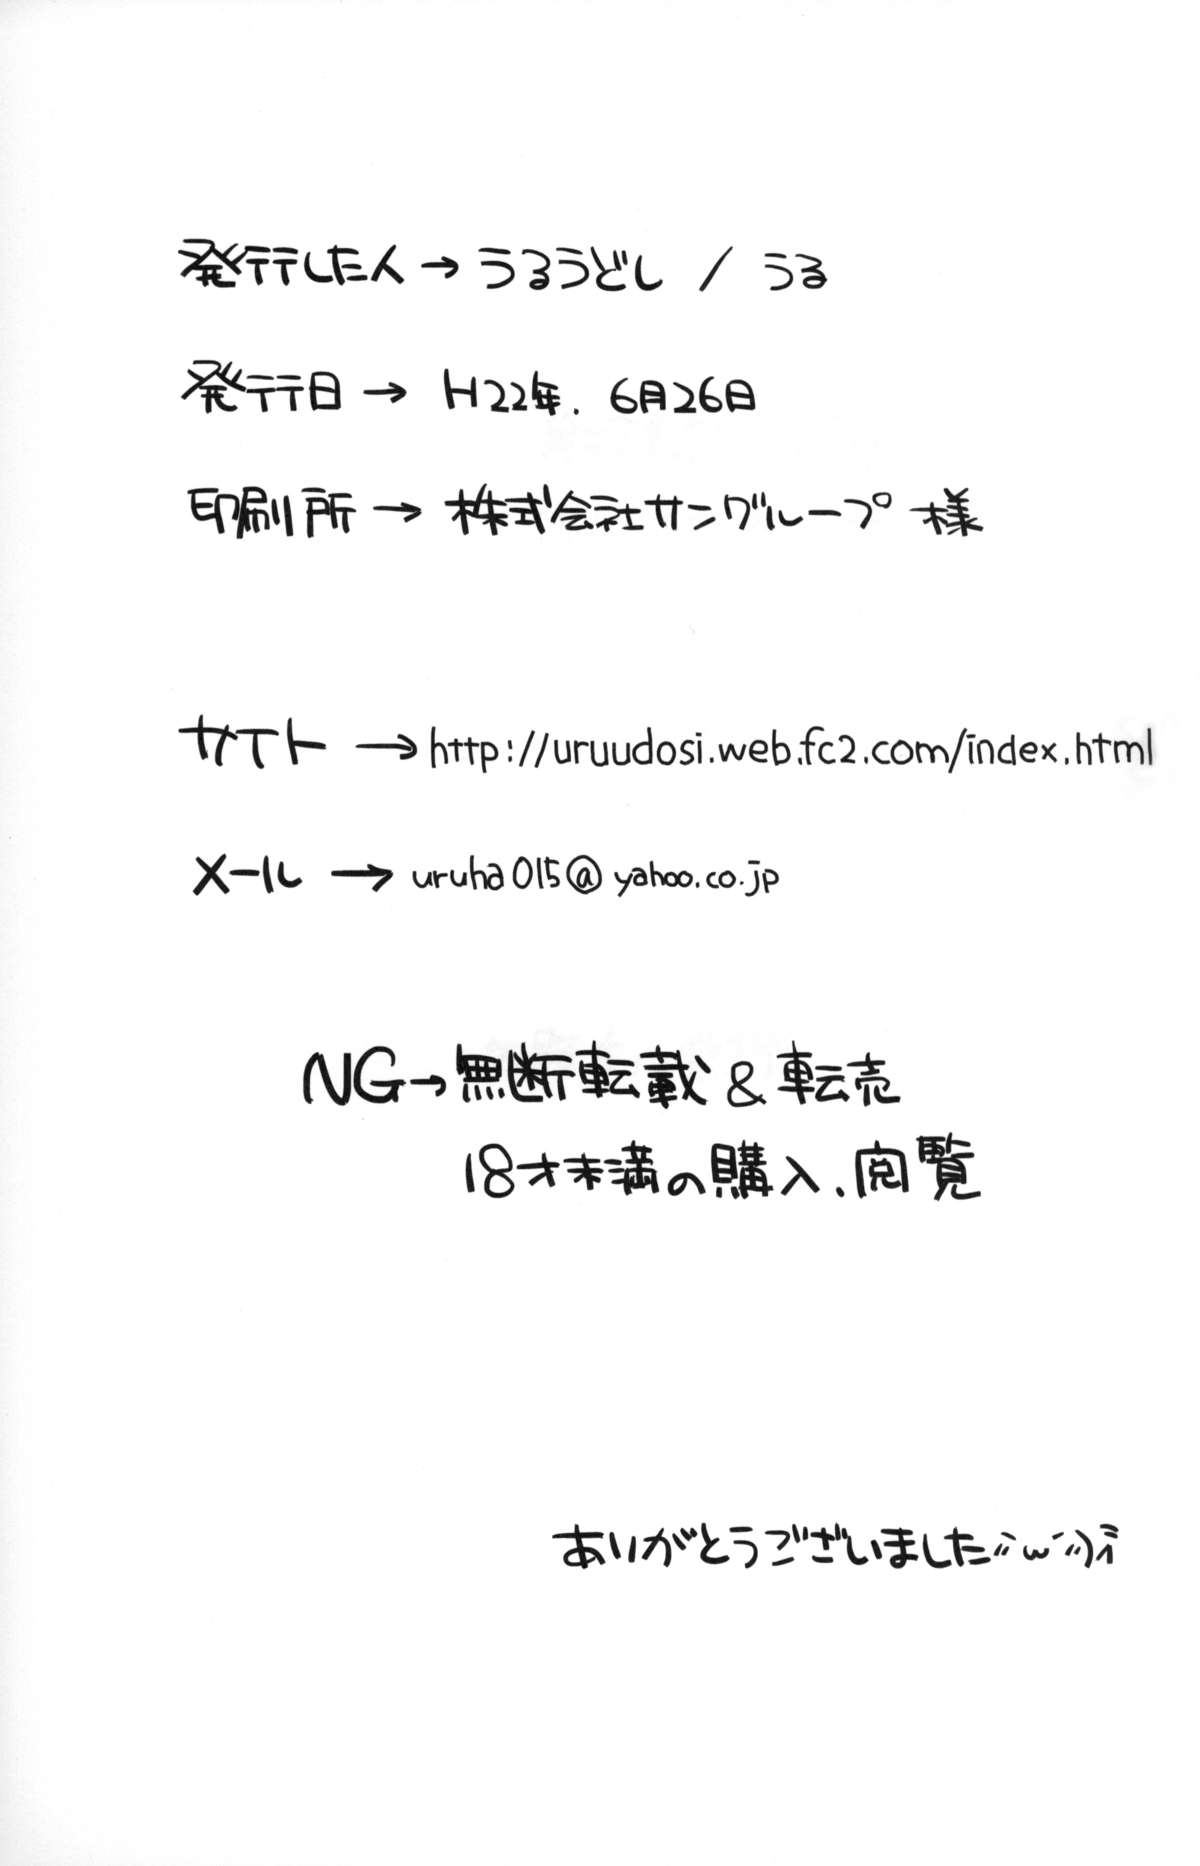 発行した人→うるうどし / うる
発行日→ H22年. 6月26日
印刷所→株式会社サングループ 様
サイト→http://uruudosi.web.fc2.com/index.html
メール→uruha015@yahoo.co.jp
NG→無断転載&転売
18才未満の購入.閲覧
ありがとうございました